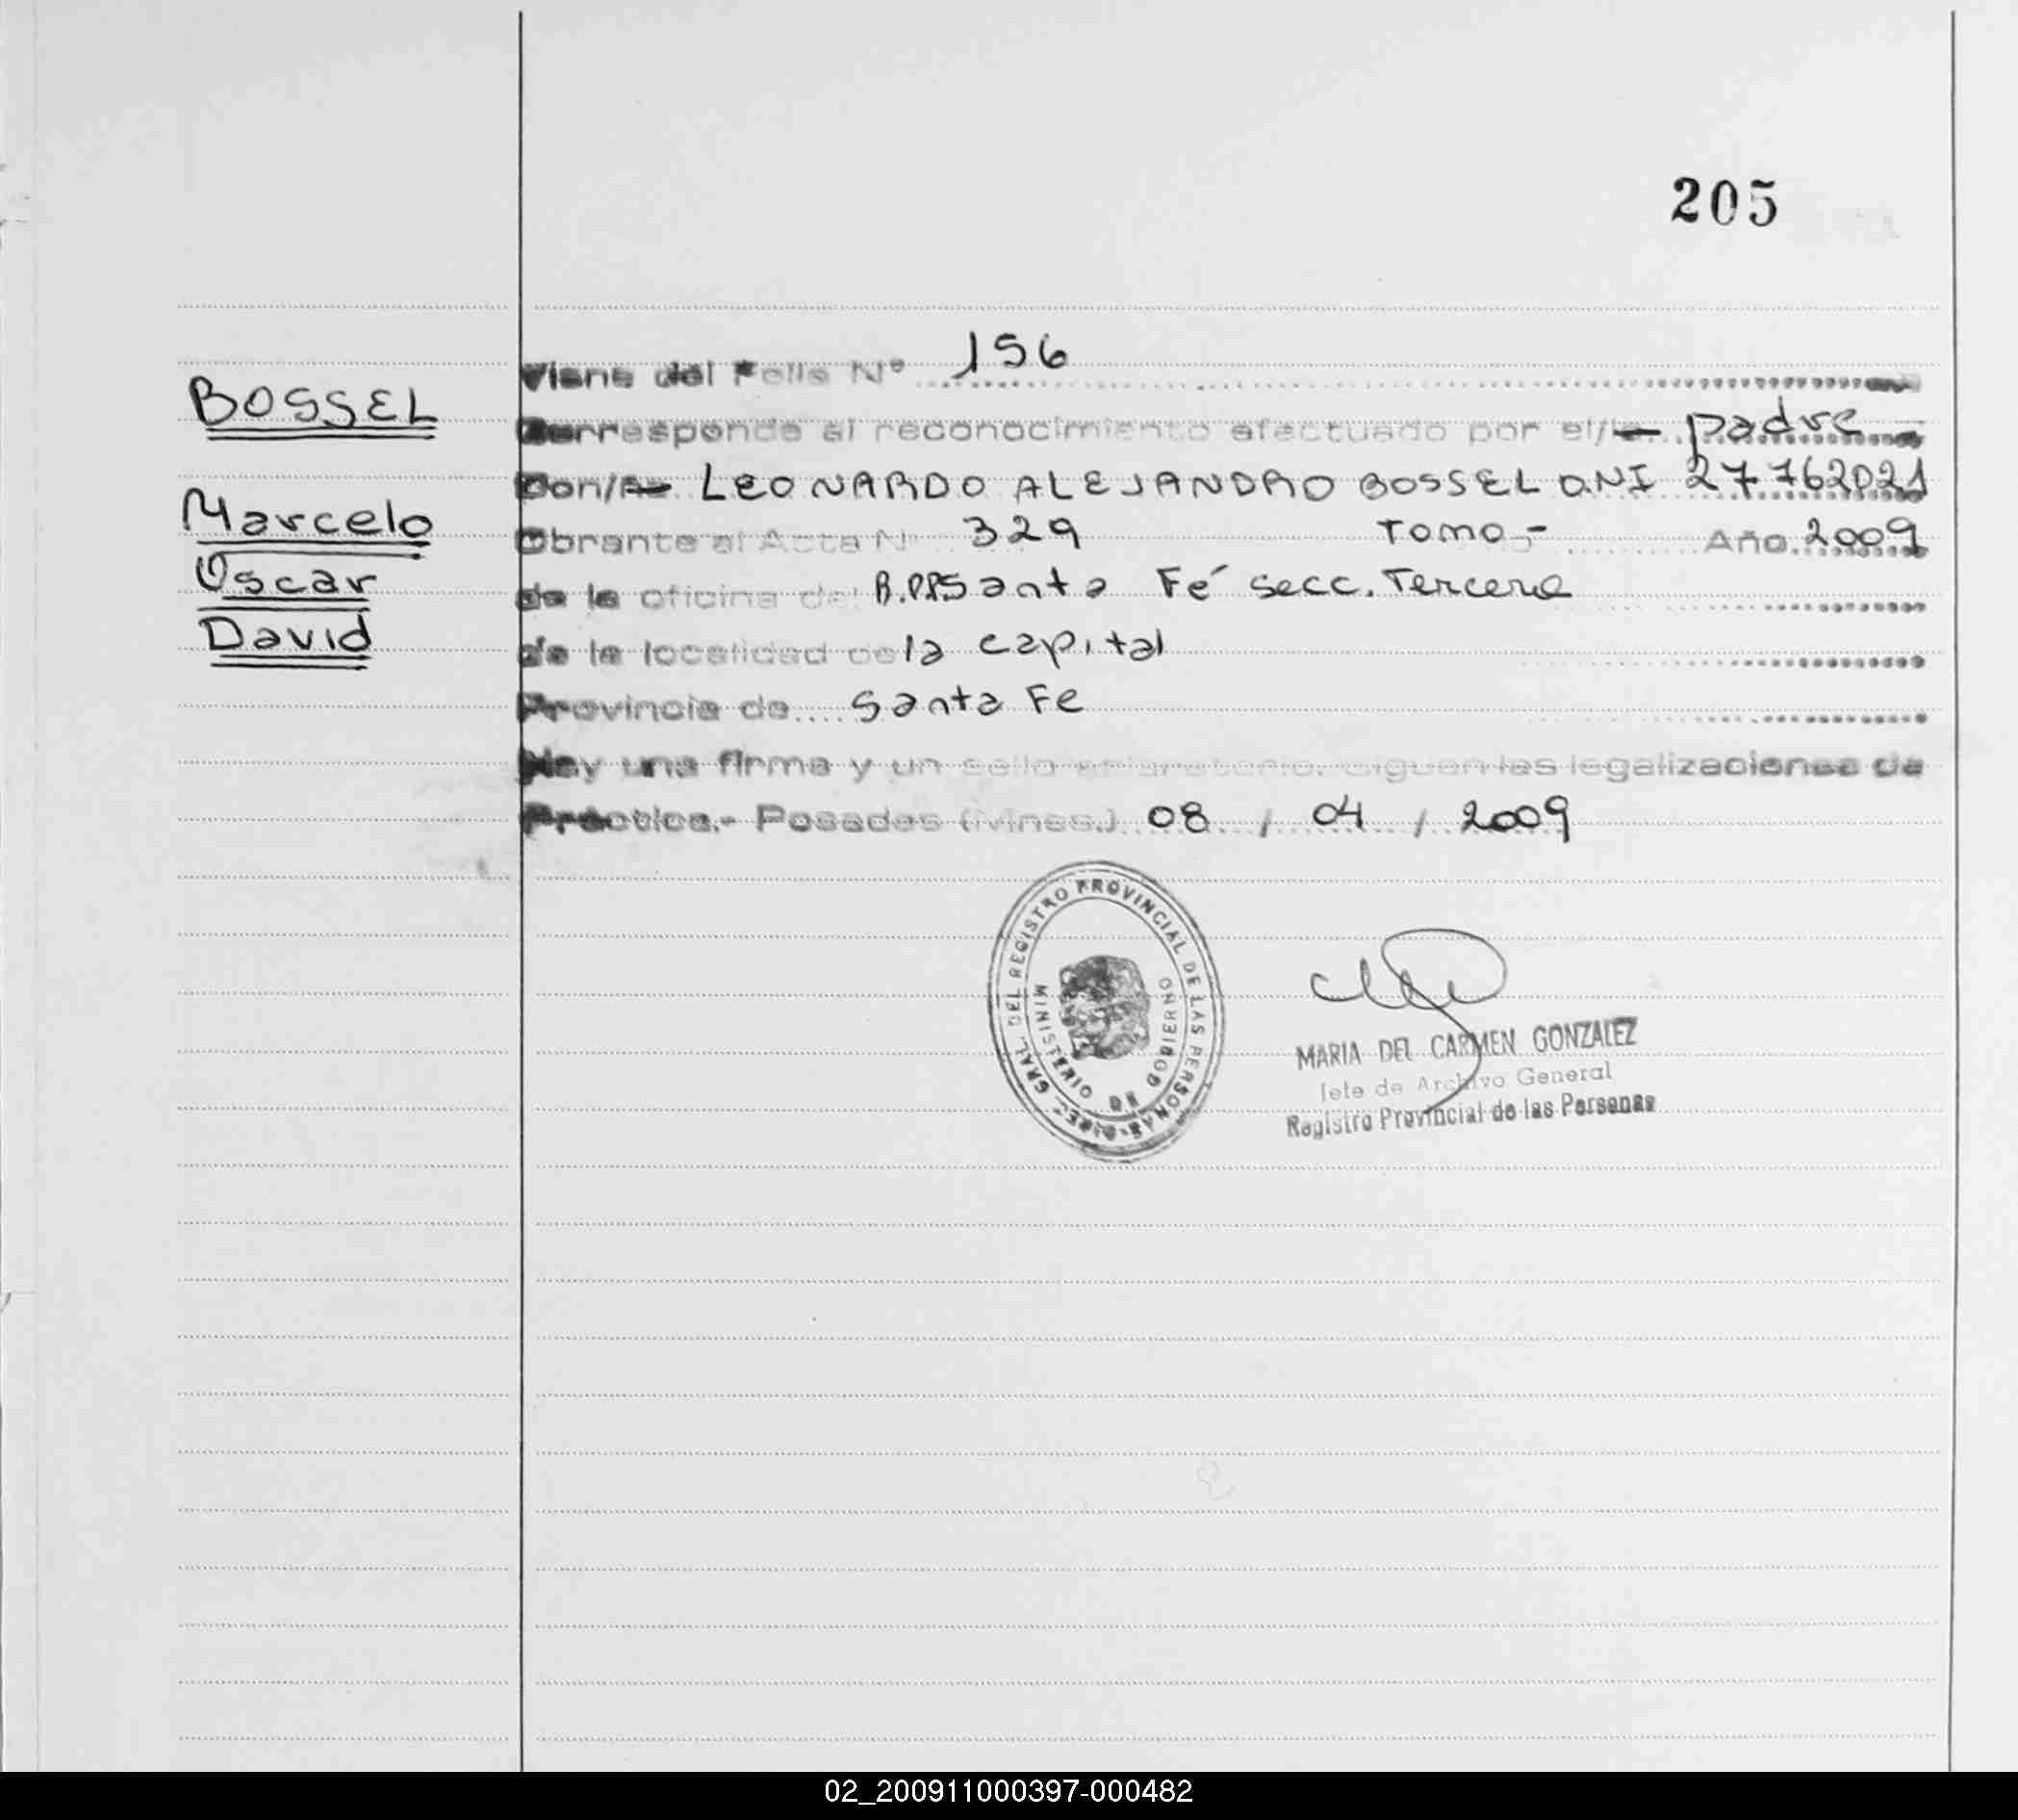 205
Viene del Folio Nº 156
BOSSEL
Corresponde al reconocimiento efectuado por el/la padre
Don/ña LEONARDO ALEJANDRO BOSSEL DNI 27762021
Marcelo
Obrante al Acta Nº 329 Tomo - Año 2009
Oscar
de la oficina del Santa Fé secc. Tercera
David
de la localidad de la capital
Provincia de Santa Fe
Hay una firma y un sello aclaratorio. Siguen las legalizaciones de
Práctica.- Posadas (Mnes.) 08 / 04 / 2009
DIREC. GRAL. DEL REGISTRO PROVINCIAL DE LAS PERSONAS
MINISTERIO DE GOBIERNO
MARIA DEL CARMEN GONZALEZ
Jefe de Archivo General
Registro Provincial de las Personas
02_200911000397-000482